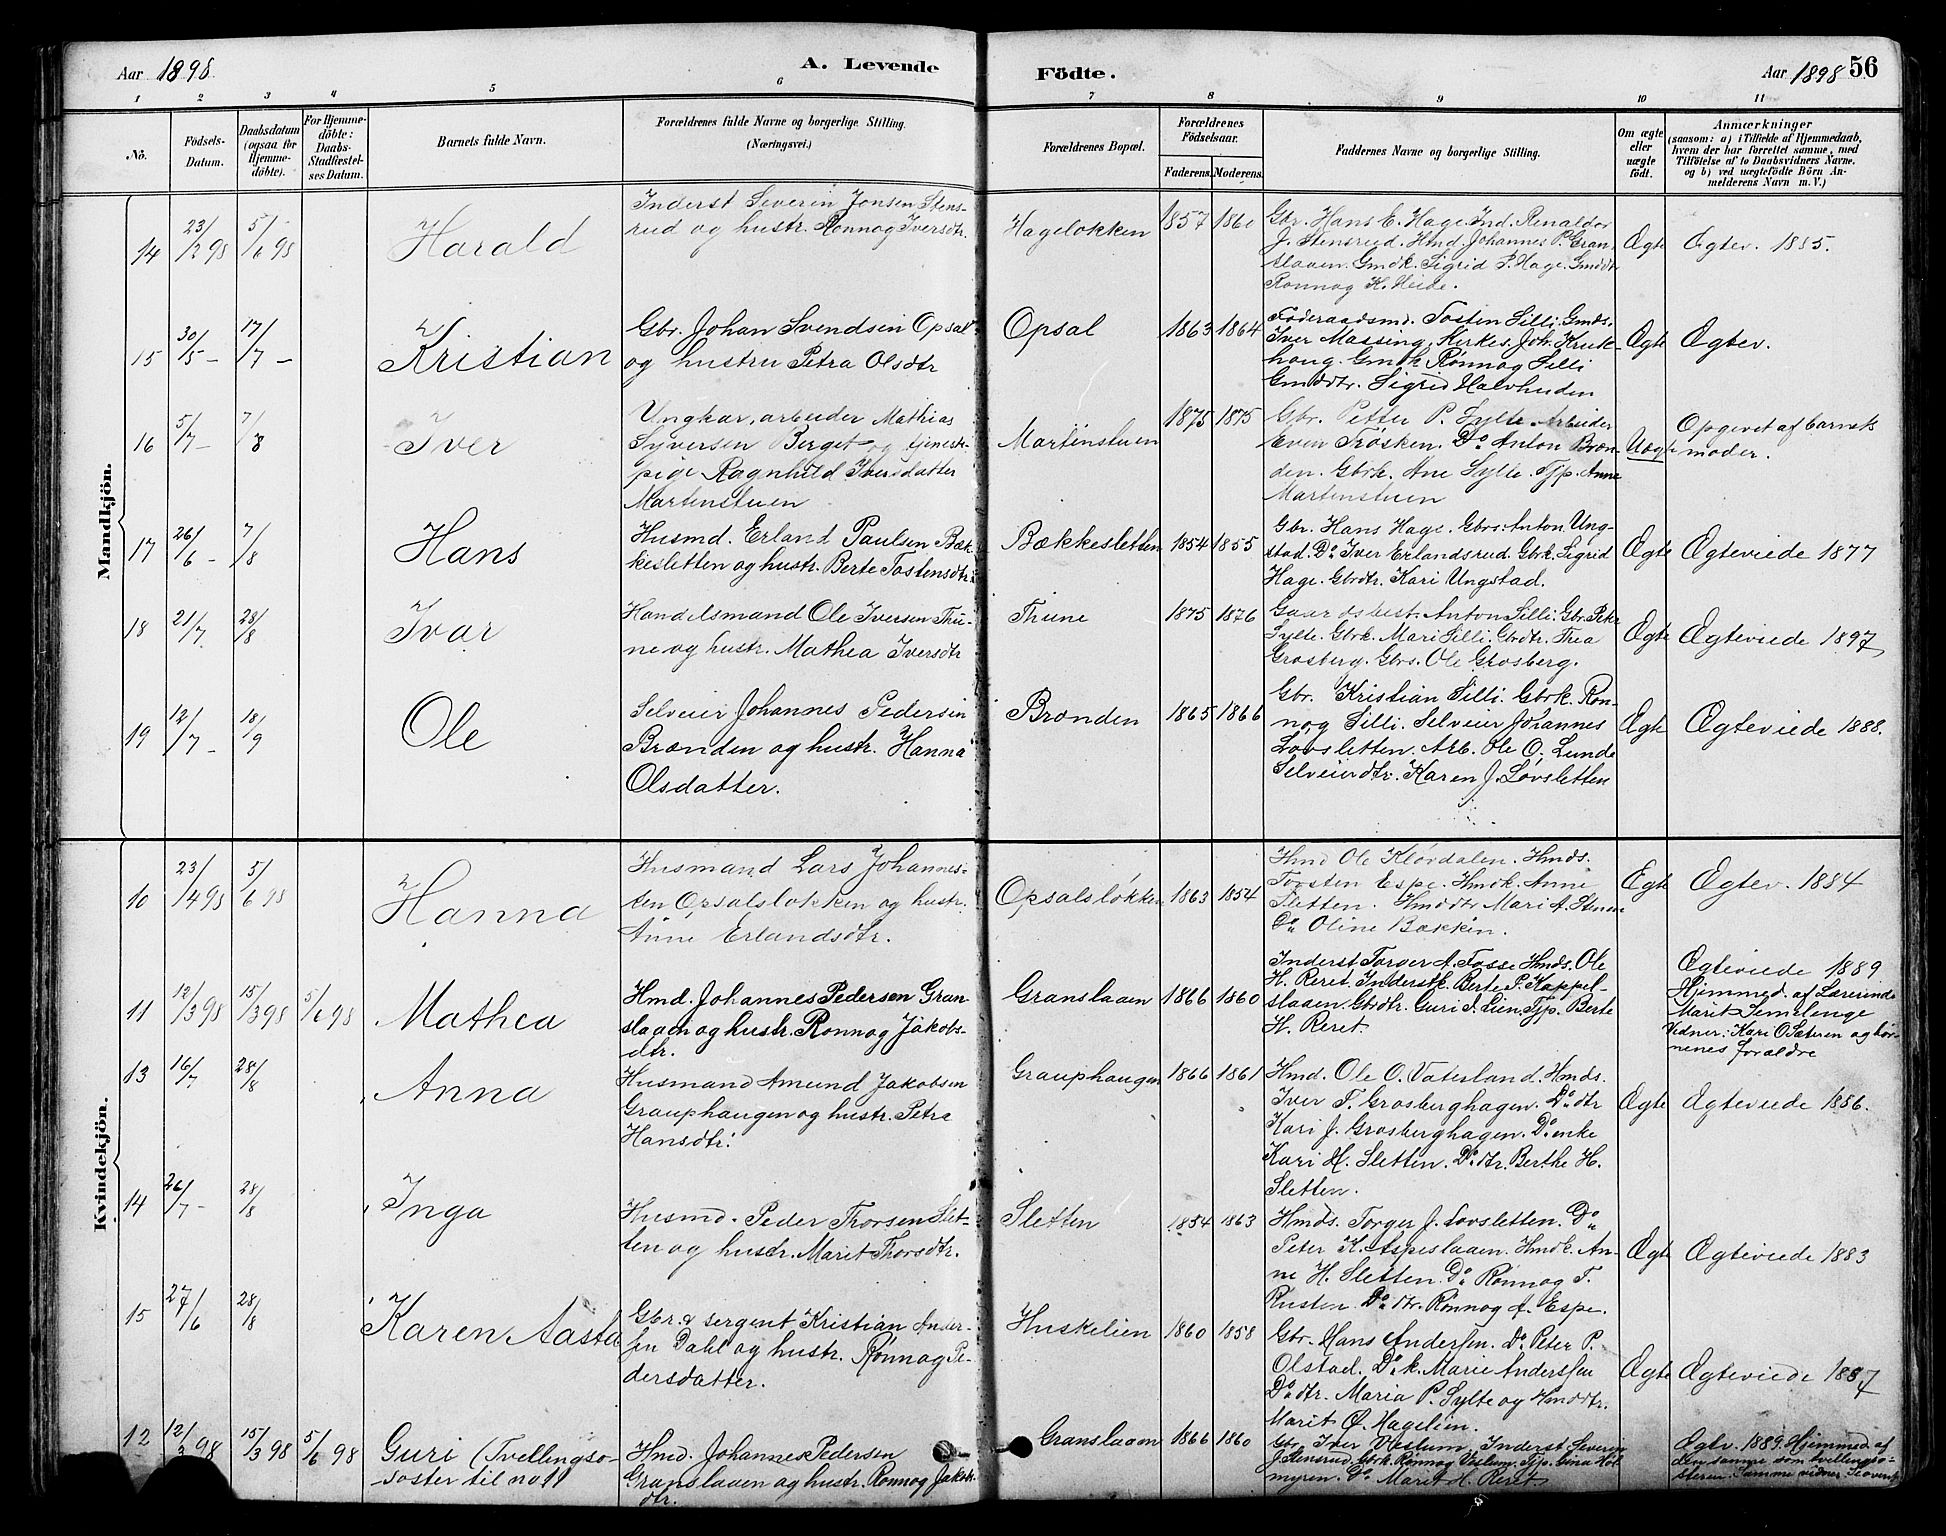 Aar 1898
A. Levende
Födte.
Aar 1898 56
1 2 3 4 5 6 7 8 9 10 11
No.
Födsels-
Datum.
Daabsdatum
(ogsaa for
Hjemme-
döbte).
For Hjemme-
döbte:
Daabs-
Stadfæstel-
ses Datum.
Barnets fulde Navn.
Forældrenes fulde Navne og borgerlige Stilling.
(Næringsvei.)
Forældrenes Bopæl.
Forældrenes
Födselsaar.
Faderens. Moderens.
Faddernes Navne og borgerlige Stilling.
Om ægte
eller
uægte
födt.
Anmærkninger
(saasom: a) i Tilfælde af Hjemmedaab,
hvem der har forrettet samme, med
Tilföielse af to Daabsvidners Navne.
og b) ved uægtefödte Börn An-
melderens Navn m. V.)
Mandkjön.
14
23/2 98
5/6 98
Harald
Inderst Severin Jonsen Stens-
rud og hustr. Rønnog Iversdtr.
Hageløkken
1857 1860
Gbr. Hans E. Hage. Ind. Renaldor
J. Stensrud. Hmd. Johannes P. Gran-
slaaen. Gmdk. Sigrid P. Hage. Gmddtr
Rønnog H. Heide.
Ægte
Ægtev. 1885.
15
30/5 -
17/7 -
Kristian
Gbr. Johan Svendsen Opsal
og hustru Petra Olsdtr
Opsal
1863 1864
Føderaadsmd. Tosten Silli. Gmds.
Iver Massing, Kirkes. Joh. Kruk-
houg. Gmk Rønnog Silli
Gmddtr. Sigrid Halvhuden
Ægte
Ægtev.
16
5/7 -
7/8
Iver
Ungkar, arbeider Mathias
Syversen Berget og tjeneste-
pige Ragnhild Iversdatter
Martenstuen
Martenstuen
1875 1875
Gbr. Petter P. Sylte. Arbeider
Even Trøsken. Do Anton Bræn-
den. Gbrk. Ane Sylte. Tjp. Anne
Martenstuen
Uægte
Opgevet af barnets
moder.
17
26/6 -
7/8
Hans
Husmd. Erland Paulsen Bæk-
kesletten og hustr. Berte Tostensdtr.
Bækkesletten
1854 1855
Gbr. Hans Hage. Gbrs. Anton Ung-
stad. Do Iver Erlandsrud. Gbrk. Sigrid
Hage. Gbrdtr. Kari Ungstad.
Ægte
Ægteviede 1877
18
21/7
28/8
Ivar
Handelsmand Ole Iversen Thu-
ne og hustr. Mathea Iversdtr
Thune
1875 1876
Gaardsbest. Anton Silli. Gbr. Peter
Sylte. Gbrk. Mari Silli. Gbrdtr. Thea
Grosberg. Gbrs. Ole Grosberg.
Ægte
Ægteviede 1897
19
12/7 -
18/9
Ole
Selveier Johannes Pedersen
Brænden og hustr. Hanna
Olsdatter.
Brænden
1865 1866
Gbr. Kristian Silli. Gbrk. Røn-
nog Silli. Selveier Johannes
Løvsletten. Arb. Ole O. Lunde
Selveierdtr. Karen J. Løvsletten
Ægte
Ægteviede 1888.
Kvindekjön.
10
23/4 98
5/6 98
Hanna
Husmand Lars Johannes-
sen Opsalsløkken og hustr.
Anne Erlandsdtr.
Opsalsløkken
1863 1854
Hmd Ole Kløvdalen. Hmds.
Torsten Espe. Hmdk. Anne
Sletten. Hmddtr Mari A. Stuen
Do Oline Bækken.
Egte
Ægtev. 1884
11
12/3 98
15/3 98
5/6 98
Mathea
Hmd. Johannes Pedersen Gran-
slaaen og hustr. Rønnog Jakobs-
dtr.
Granslaaen
1866 1860
Inderst Torger A. Fosse Hmds. Ole
H. Reret. Inderstk. Berte P. Kappel-
slaaen. Gbrdtr. Guri I. Lien. Tjp. Berte
H. Reret.
Ægteviede 1889
Hjemmed. af Lærerinde
Marit Semelenge
Vidner: Kari O. Sæteren og bør-
nenes forældre
13
16/7
28/8
Anna
Husmand Amund Jakobsen
Grauphaugen og hustr. Petra
Hansdtr.
Grauphaugen
1866 1861
Hmd. Ole O. Vaterland. Hmds.
Iver T. Grosberghagen. Do dtr
Kari J. Grosberghagen. Do enke
Kari H. Sletten. Do dtr. Berthe H.
Sletten.
Ægte
Ægteviede 1886.
14
26/7 -
28/8
Inga
Husmd. Peder Thorsen Slet-
ten og hustr. Marit Thorsdtr.
Sletten
1854 1863
Hmds. Torger J. Løvsletten. Do
Peter K. Aspeslaaen. Hmdk. An-
ne H. Sletten. Do Rønnog T.
Rusten. Do dtr. Rønnog A. Espe.
Ægte
Ægteviede 1883
15
27/6
28/8
Karen Aasta
Gbr. & sergent Kristian Ander-
sen Dahl og hustr. Rønnog Pe-
dersdatter.
Huskelien
1860 1858
Gbr. Hans Andersen. Do Peter P.
Olstad. Do k. Marie Anderssen
Do dtr. Maria P. Sylte og Hmddtr.
Marit O. Hagelien.
Ægte
Ægteviede 1887
12
12/3 98
15/3 98
5/6 98
Guri (Tvellingsø-
søster til no 11
Hmd. Johannes Pedersen
Granslaaen og hustr. Rønnog Jakobs-
dtr.
Granslaaen
1866 1860
Gbr. Iver Veslum. Inderst Severin
J. Stensrud. Gbrk. Rønnog Veslum. Tjp. Gina Hol-
myren. Do Marit H. Reret
Ægtv. 1889. Hjemmed. af
den samme som tvellingsø-
steren. Samme vidner.